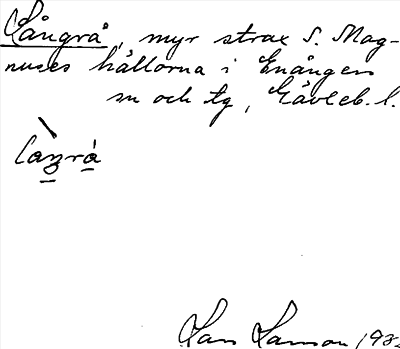 Långrå, myr strax S. Mag-
nuses hällorna i Enångers
sn och tg, Gävleb. l.
laŋrå
Lars Larsson 198